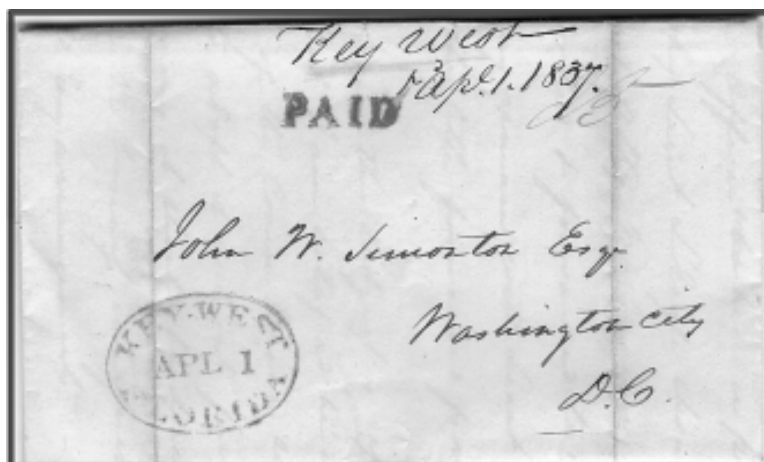 Key West
Apl. 1. 1837.
PAID
John W. Simonton Esqr.
Washington City
D.C.
KEY-WEST
APL 1
FLORIDA